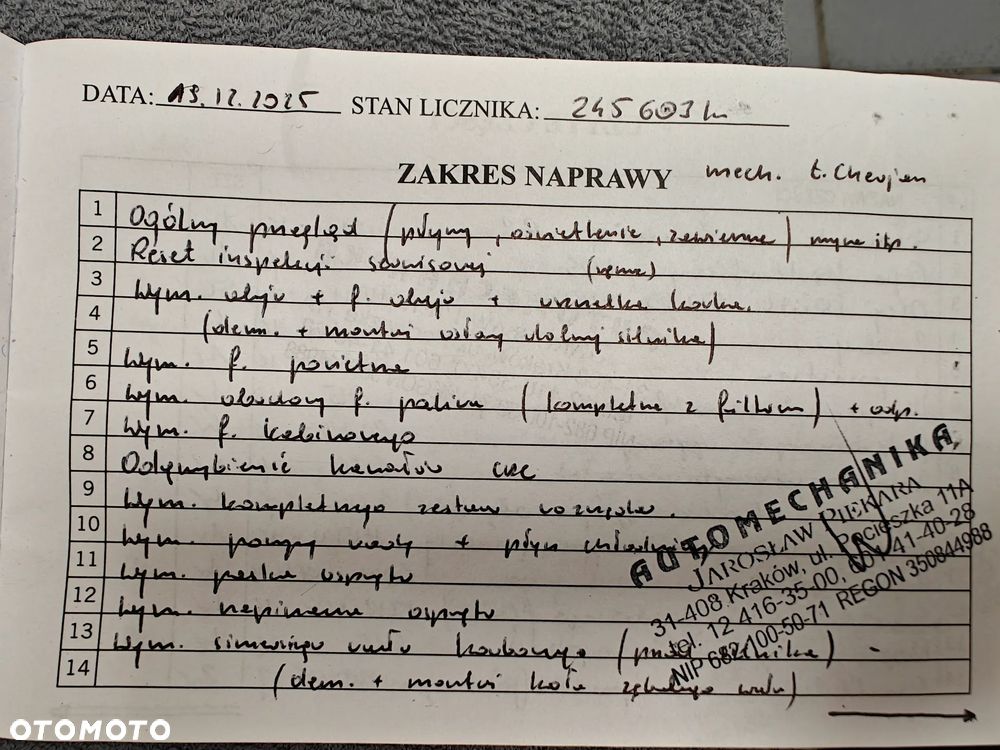 DATA: 19.12.2025 STAN LICZNIKA: 245 603 km
ZAKRES NAPRAWY mech. t.
1 Ogólny przegląd (płyny, oświetlenie, zawieszenie) itp.
2 Reset inspekcji serwisowej
3 Wym. oleju + f. oleju + uszczelka korka.
4 (dem. + montaż osłony dolnej silnika)
5 Wym. f. powietrza
6 Wym. obudowy f. paliwa (kompletna z filtrem) + odp.
7 Wym. f. kabinowego
8 Odgrzybienie kanałów
9 Wym. kompletnego zestawu rozrządu.
10 Wym. pompy wody + płyn
11 Wym. paska osprzętu
12 Wym. napinacza osprzętu
13 Wym. simeringu wału korbowego
14 (dem. + montaż koła zębatego wału)
AUTOMECHANIKA
JAROSŁAW PIEKARA
31-408 Kraków, ul. Pocieszka 11A
tel. 12 416-35-00, 41-40-28
NIP 682-100-50-71 REGON 350844988
OTOMOTO